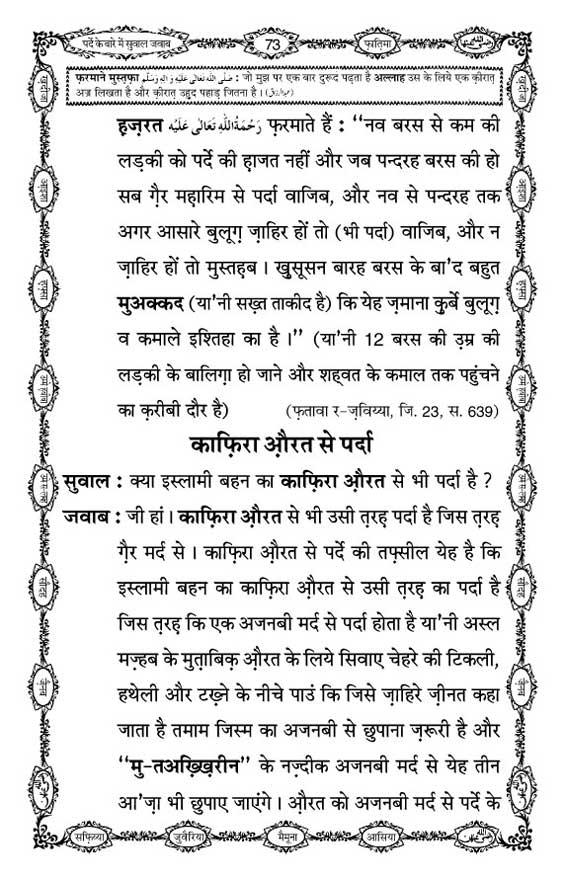 पर्दे के बारे में सुवाल जवाब
73
फ़ातिमा
फ़रमाने मुस्तफ़ा صَلَّى اللهُ تَعَالٰى عَلَيْهِ وَاٰلِهٖ وَسَلَّم : जो मुझ पर एक बार दुरूद पढ़ता है अल्लाह उस के लिये एक क़ीरात़
अज्र लिखता है और क़ीरात़ उहुद पहाड़ जितना है ।
हज़रत رَحْمَةُ اللهِ تَعَالٰى عَلَيْه फ़रमाते हैं : ‘‘नव बरस से कम की
लड़की को पर्दे की ह़ाजत नहीं और जब पन्दरह बरस की हो
सब ग़ैर महारिम से पर्दा वाजिब, और नव से पन्दरह तक
अगर आसारे बुलूग़ ज़ाहिर हों तो (भी पर्दा) वाजिब, और न
ज़ाहिर हों तो मुस्तह़ब । खुसूसन बारह बरस के बा’द बहुत
मुअक्कद (या’नी सख़्त ताकीद है) कि येह ज़माना क़ुर्बे बुलूग़
व कमाले इश्तिहा का है ।’’ (या’नी 12 बरस की उ़म्र की
लड़की के बालिग़ा हो जाने और शह्वत के कमाल तक पहुंचने
का क़रीबी दौर है) (फ़तावा र-ज़विय्या, जि. 23, स. 639)
काफ़िरा औ़रत से पर्दा
सुवाल : क्या इस्लामी बहन का काफ़िरा औ़रत से भी पर्दा है ?
जवाब : जी हां । काफ़िरा औ़रत से भी उसी त़रह़ पर्दा है जिस त़रह़
ग़ैर मर्द से । काफ़िरा औ़रत से पर्दे की तफ़्सील येह है कि
इस्लामी बहन का काफ़िरा औ़रत से उसी त़रह़ का पर्दा है
जिस त़रह़ कि एक अजनबी मर्द से पर्दा होता है या’नी अस्ल
मज़्हब के मुत़ाबिक़ औ़रत के लिये सिवाए चेहरे की टिकली,
हथेली और टख़्ने के नीचे पाउं कि जिसे ज़ाहिरे ज़ीनत कहा
जाता है तमाम जिस्म का अजनबी से छुपाना ज़रूरी है और
‘‘मु-तअख़्ख़िरीन’’ के नज़्दीक अजनबी मर्द से येह तीन
आ’ज़ा भी छुपाए जाएंगे । औ़रत को अजनबी मर्द से पर्दे के
सफ़िय्या
जुवैरिया
मैमूना
आसिया